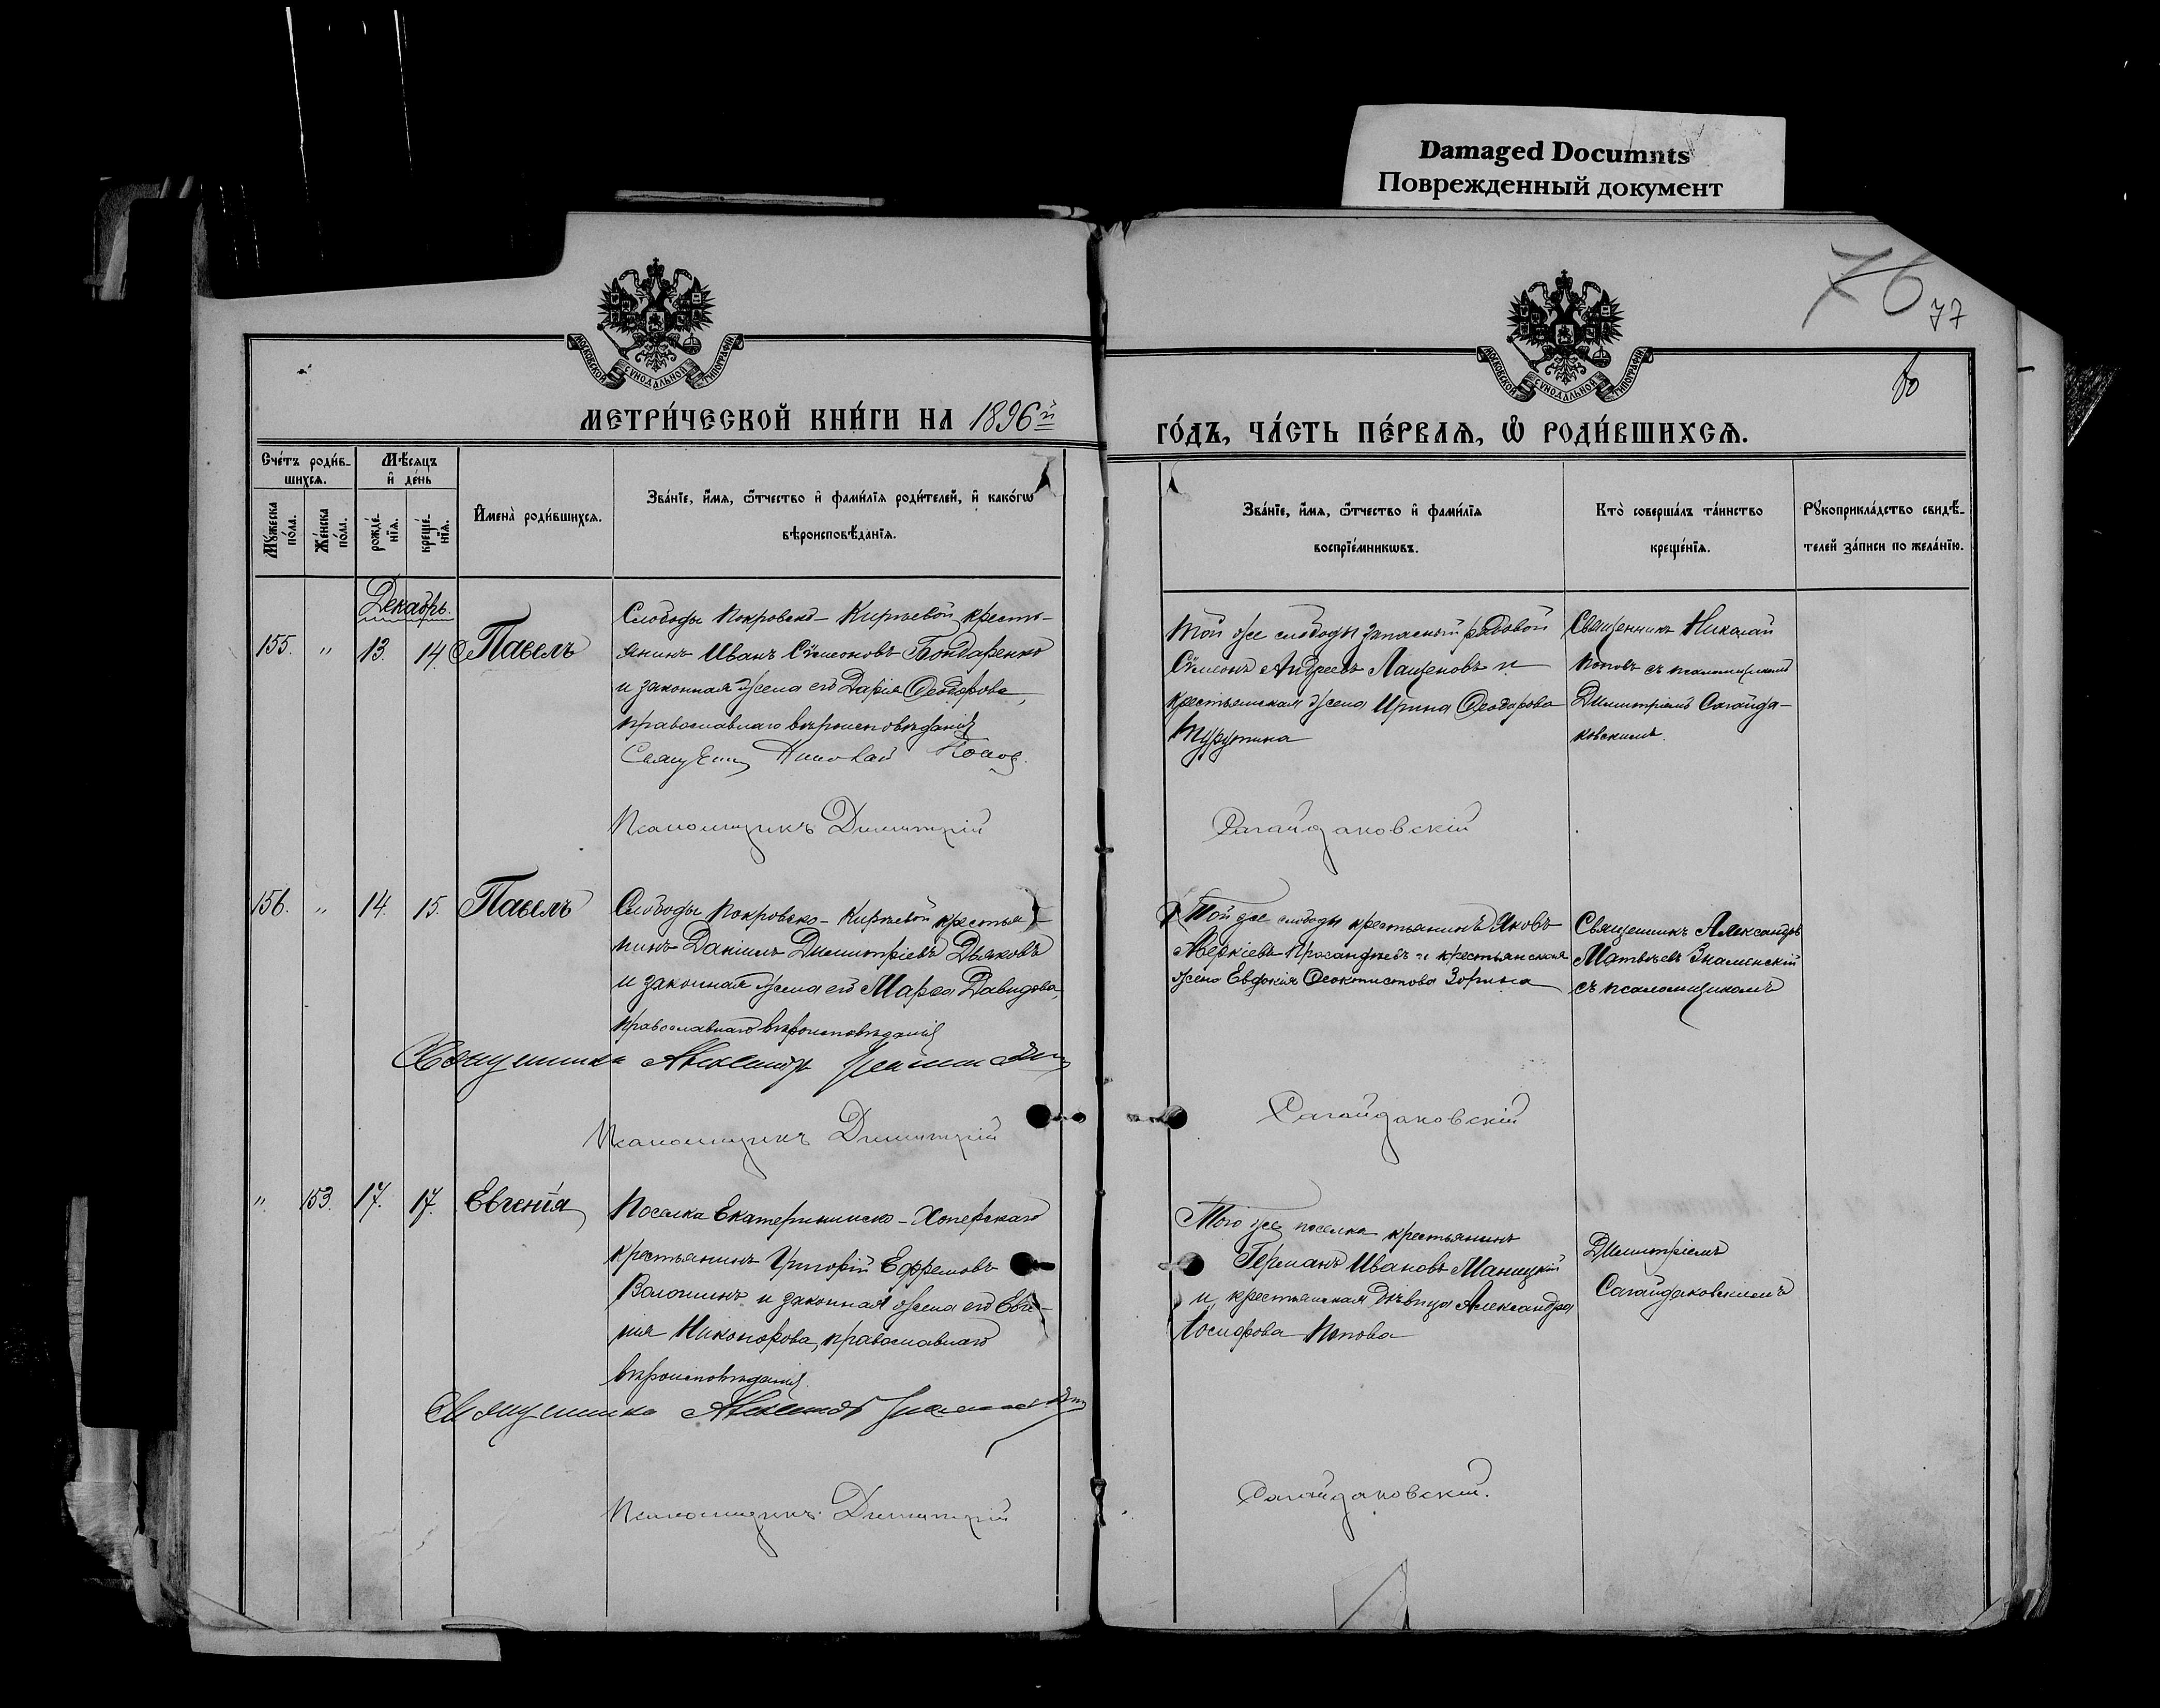 Damaged Documnts
Поврежденный документ
76
77
80
МОСКОВСКОЙ СѴНОДАЛЬНОЙ ТИПОГРАФІИ
МОСКОВСКОЙ СѴНОДАЛЬНОЙ ТИПОГРАФІИ
МЕТРИ́ЧЕСКОЙ КНИ́ГИ НА 1896й
ГО́ДЪ, ЧА́СТЬ ПЕ́РВАѦ, Ѽ РОДИ́ВШИХСѦ.
Сче́тъ роди́в-
шихсѧ.
Мѣ́сѧцъ
и҆ де́нь
Мꙋ́жеска
по́ла.
Же́нска
по́ла.
рожде́-
нїѧ.
креще́-
нїѧ.
И҆мена̀ роди́вшихсѧ.
Зва́нїе, и҆́мѧ, ѻ҆́тчество и҆ фами́лїѧ роди́телей, и҆ како́гѡ
вѣроисповѣ́данїѧ.
Зва́нїе, и҆́мѧ, ѻ҆́тчество и҆ фами́лїѧ
воспрїе́мникѡвъ.
Кто̀ соверша́лъ та́инство
креще́нїѧ.
Рꙋкоприкла́дство свидѣ́-
телей за́писи по жела́нїю.
Декабрь.
155. " 13. 14. Павелъ
Слободы Покровско-Киреевой кресть-
янинъ Иванъ Сѵмеоновъ Бондаренко
и законная жена его Дарія Ѳеодорова,
православнаго вѣроисповѣданія
Священникъ Николай Попов.
Псаломщикъ Димитрій
Той же слободы запасный рядовой
Сѵмеонъ Андреевъ Лащеновъ и
крестьянская жена Ирина Ѳеодорова
Священникъ Николай
Поповъ съ псаломщикомъ
Димитріемъ Сагайда-
ковскимъ.
Сагайдаковскій
156. " 14. 15. Павелъ
Слободы Покровско-Киреевой крестья-
нинъ Даніилъ Димитріевъ Дьяковъ
и законная жена его Марѳа Давидова,
православнаго вѣроисповѣданія
Священникъ Александръ Знаменскій
Псаломщикъ Димитрій
Той же слободы крестьянинъ Яковъ
Аверкіевъ и крестьянская
жена Евдокія Ѳеоктистова Зорина
Священникъ Александръ
Матвѣевъ Знаменскій
съ псаломщикомъ
Сагайдаковскій
" 153. 17. 17. Евгенія
Поселка Екатерининско-Хоперскаго
крестьянинъ Григорій Ефремовъ
Волошинъ и законная жена его Евге-
нія Никонорова, православнаго
вѣроисповѣданія.
Священникъ Александръ Знаменскій
Псаломщикъ Димитрій
Того же поселка крестьянинъ
Германъ Ивановъ Маницкій
и крестьянская дѣвица Александра
Іосифова Попова
Димитріемъ
Сагайдаковскимъ
Сагайдаковскій.